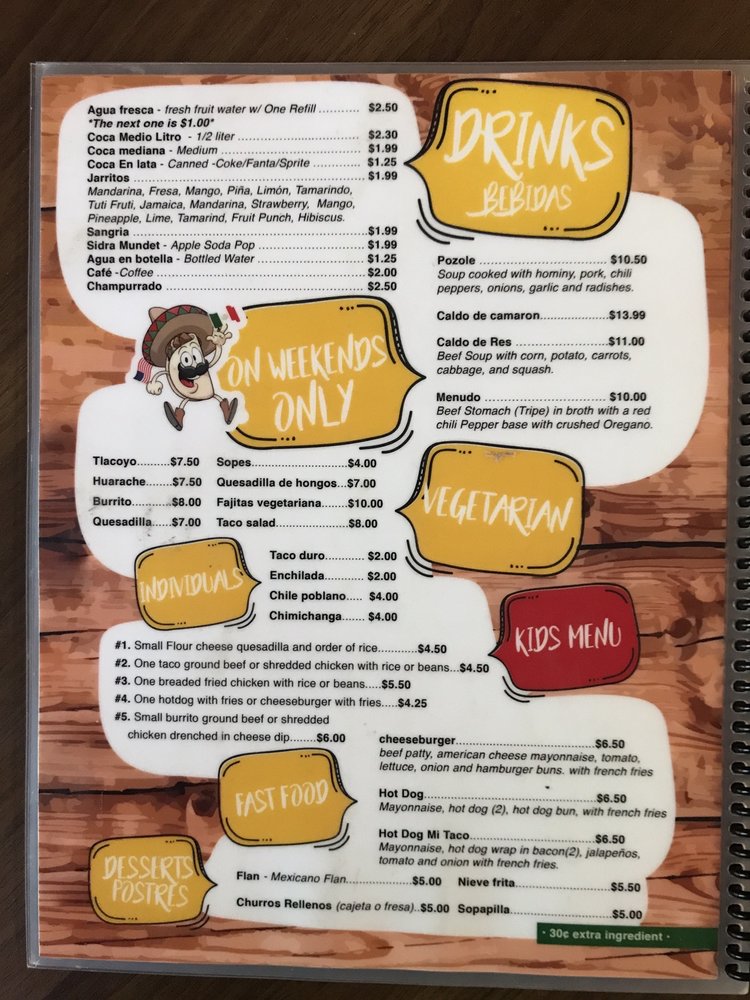 DRINKS
BEBIDAS
Agua fresca - fresh fruit water w/ One Refill .......... $2.50
*The next one is $1.00*
Coca Medio Litro - 1/2 liter .......... $2.30
Coca mediana - Medium .......... $1.99
Coca En lata - Canned -Coke/Fanta/Sprite .......... $1.25
Jarritos .......... $1.99
Mandarina, Fresa, Mango, Piña, Limón, Tamarindo,
Tuti Fruti, Jamaica, Mandarina, Strawberry, Mango,
Pineapple, Lime, Tamarind, Fruit Punch, Hibiscus.
Sangria .......... $1.99
Sidra Mundet - Apple Soda Pop .......... $1.99
Agua en botella - Bottled Water .......... $1.25
Café -Coffee .......... $2.00
Champurrado .......... $2.50
ON WEEKENDS
ONLY
Pozole .......... $10.50
Soup cooked with hominy, pork, chili
peppers, onions, garlic and radishes.
Caldo de camaron.......... $13.99
Caldo de Res .......... $11.00
Beef Soup with corn, potato, carrots,
cabbage, and squash.
Menudo .......... $10.00
Beef Stomach (Tripe) in broth with a red
chili Pepper base with crushed Oregano.
VEGETARIAN
Tlacoyo.........$7.50 Sopes..........$4.00
Huarache.......$7.50 Quesadilla de hongos...$7.00
Burrito..........$8.00 Fajitas vegetariana.......$10.00
Quesadilla.....$7.00 Taco salad..........$8.00
INDIVIDUALS
Taco duro.......... $2.00
Enchilada.......... $2.00
Chile poblano.... $4.00
Chimichanga....... $4.00
KIDS MENU
#1. Small Flour cheese quesadilla and order of rice..........$4.50
#2. One taco ground beef or shredded chicken with rice or beans...$4.50
#3. One breaded fried chicken with rice or beans.....$5.50
#4. One hotdog with fries or cheeseburger with fries.....$4.25
#5. Small burrito ground beef or shredded
chicken drenched in cheese dip.......$6.00
FAST FOOD
cheeseburger..........$6.50
beef patty, american cheese mayonnaise, tomato,
lettuce, onion and hamburger buns. with french fries
Hot Dog..........$6.50
Mayonnaise, hot dog (2), hot dog bun, with french fries
Hot Dog Mi Taco..........$6.50
Mayonnaise, hot dog wrap in bacon(2), jalapeños,
tomato and onion with french fries.
DESSERTS
POSTRES
Flan - Mexicano Flan..........$5.00 Nieve frita..........$5.50
Churros Rellenos (cajeta o fresa)..$5.00 Sopapilla..........$5.00
· 30¢ extra ingredient ·